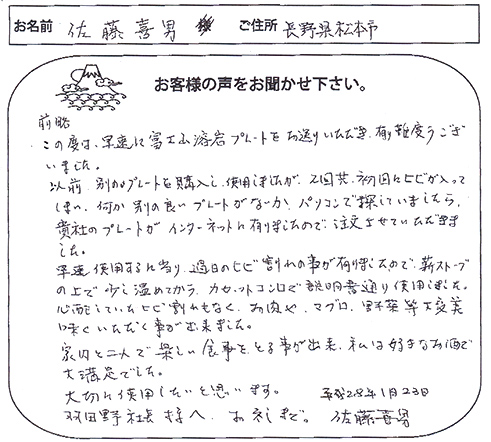 お名前 佐藤喜男 様 ご住所 長野県松本市
お客様の声をお聞かせ下さい。
前略
この度は、早速に富士山溶岩プレートをお送りいただき、有り難度うござ
いました。
以前、別のプレートを購入し、使用しましたが、2回共、初回にヒビが入って
しまい、何か別の良いプレートがないか、パソコンで探していましたら、
貴社のプレートがインターネットに有りましたので注文させていただきま
した。
早速使用するに当り、過日のヒビ割れの事が有りましたので、薪ストーブ
の上で少し温めてから、カセットコンロで説明書通り使用しました。
心配していたヒビ割れもなく、お肉や、マグロ、野菜等大変美
味くいただく事が出来ました。
家内と二人で楽しい食事をとる事が出来、私は好きなお酒で
大満足でした。
大切に使用したいと思います。 平成28年1月23日
羽田野社長様へ お礼まで。 佐藤喜男